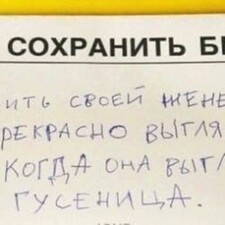 СОХРАНИТЬ БІ
ИТЬ СВОЕЙ ЖЕНЕ
РЕКРАСНО ВЫГЛЯ
КОГДА ОНА ВЫГЛ
ГУСЕНИЦА.